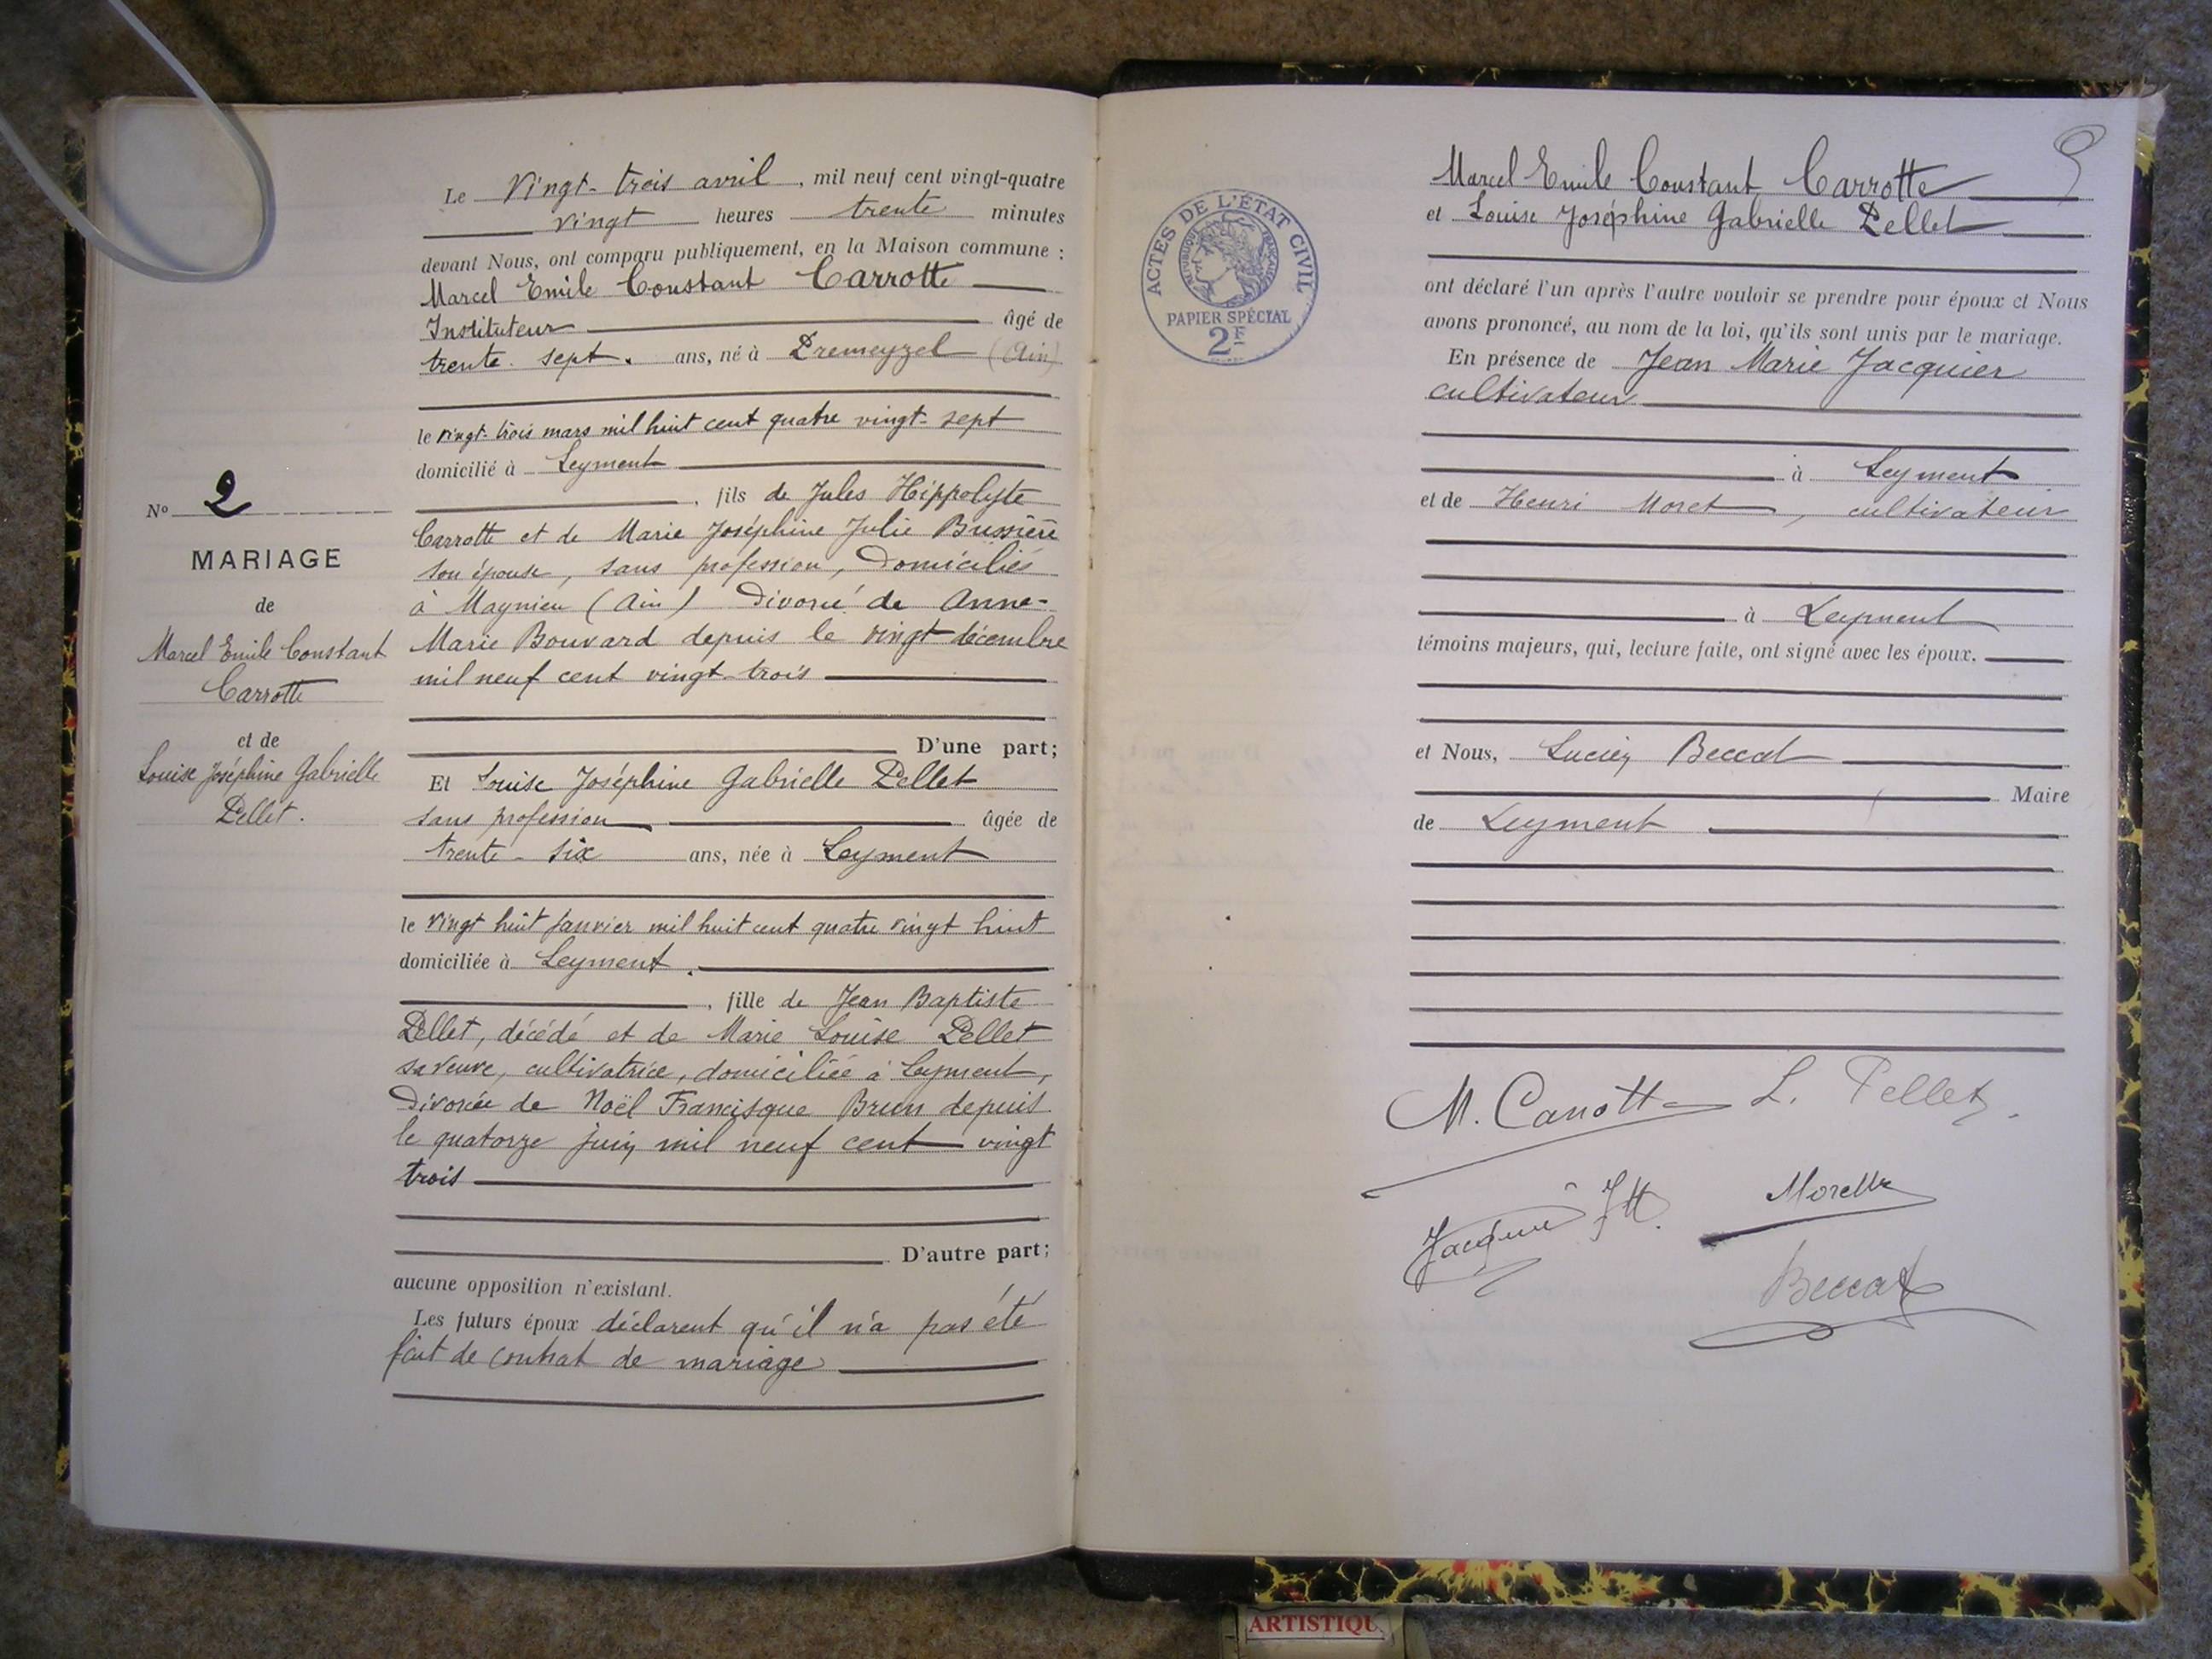 Le Vingt-trois avril, mil neuf cent vingt-quatre
vingt heures trente minutes
devant Nous, ont comparu publiquement, en la Maison commune :
Marcel Emile Constant Carrotte
Instituteur âgé de
trente-sept. ans, né à Premeyzel (Ain)
le vingt-trois mars mil huit cent quatre vingt-sept
domicilié à Leyment
, fils de Jules Hippolyte
Carrotte et de Marie Joséphine Julie Bussière
son épouse, sans profession, domiciliés
à Magnieu (Ain) Divorcé de Anne-
Marie Bouvard depuis le vingt décembre
mil neuf cent vingt-trois
D'une part;
Et Louise Joséphine Gabrielle Pellet
sans profession âgée de
trente-six ans, née à Leyment
le vingt huit janvier mil huit cent quatre vingt huit
domiciliée à Leyment.
, fille de Jean Baptiste
Pellet, décédé et de Marie Louise Pellet
sa veuve, cultivatrice, domiciliée à Leyment,
Divorcée de Noël Francisque Brun depuis
le quatorze juin mil neuf cent vingt
trois
D'autre part;
aucune opposition n'existant.
Les futurs époux déclarent qu'il n'a pas été
fait de contrat de mariage
No 2
MARIAGE
de
Marcel Emile Constant
Carrotte
et de
Louise Joséphine Gabrielle
Pellet.
ACTES DE L'ÉTAT CIVIL
RÉPUBLIQUE FRANÇAISE
PAPIER SPÉCIAL
2F
Marcel Emile Constant Carrotte
et Louise Joséphine Gabrielle Pellet
ont déclaré l'un après l'autre vouloir se prendre pour époux et Nous
avons prononcé, au nom de la loi, qu'ils sont unis par le mariage.
En présence de Jean Marie Jacquier
cultivateur
à Leyment
et de Henri Moret, cultivateur
à Leyment
témoins majeurs, qui, lecture faite, ont signé avec les époux.
et Nous, Lucien Beccat
Maire
de Leyment
M. Carrotte L. Pellet.
Jacquier JM. Morelle
Beccat
ARTISTIQU